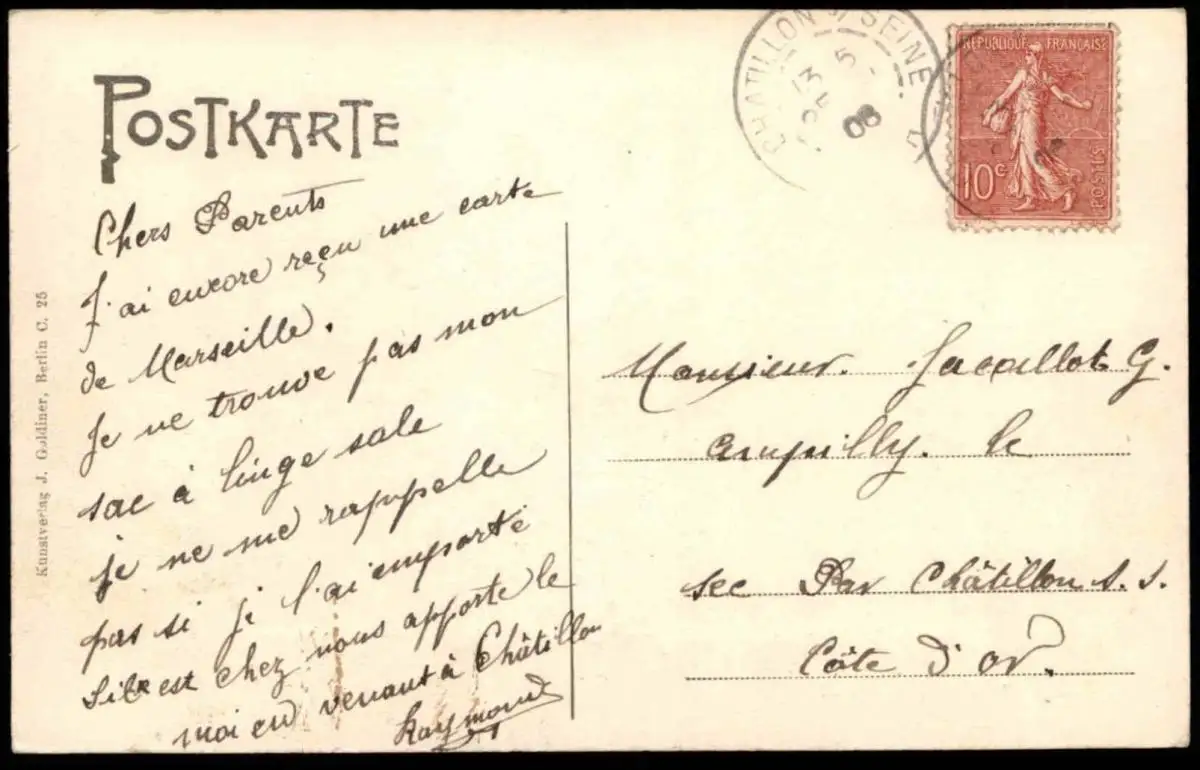 POSTKARTE
CHATILLON S SEINE
13 5
08
REPUBLIQUE FRANÇAISE
10c
POSTES
Kunstverlag J. Goldiner, Berlin C. 25
Chers Parents
J'ai encore reçu une carte
de Marseille.
Je ne trouve pas mon
sac à linge sale
je ne me rappelle
pas si je l'ai emporté
S'il est chez nous apporte le
moi en venant à Châtillon
Raymond
Monsieur. Jacallot G.
Ampilly. le
sec Par Châtillon s. s.
Côte d'or.